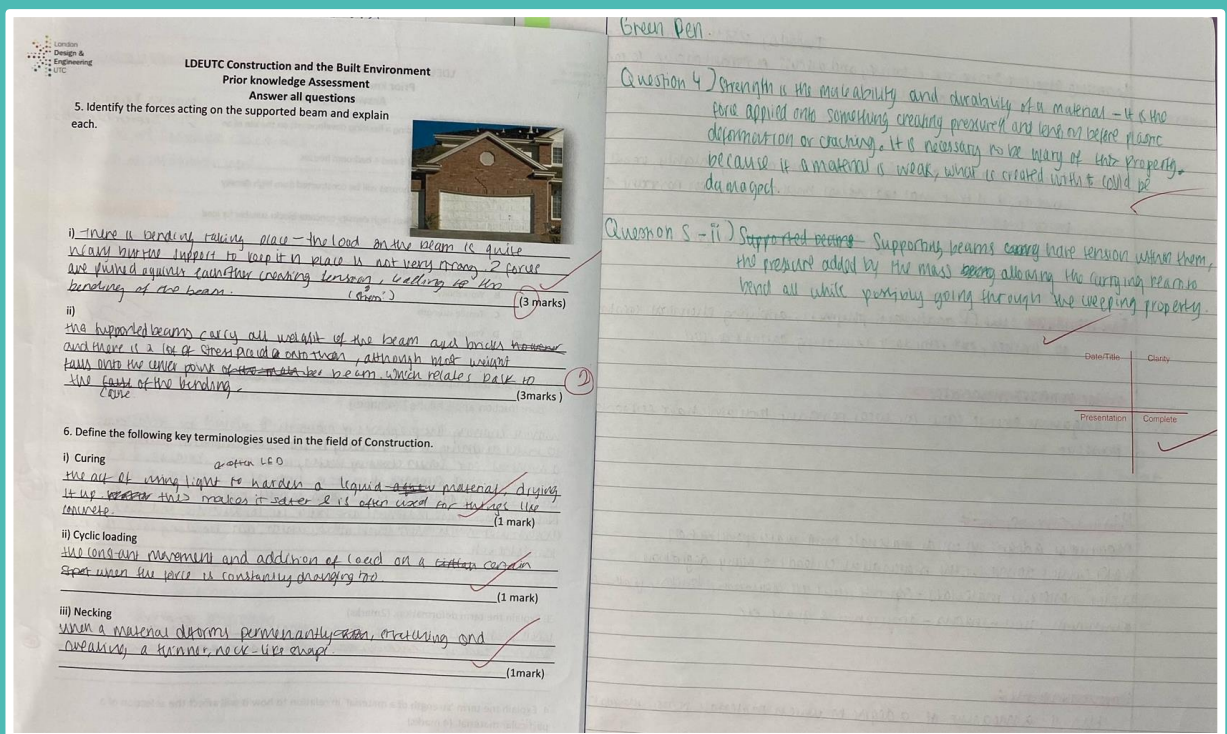 London
Design &
Engineering
UTC
LDEUTC Construction and the Built Environment
Prior knowledge Assessment
Answer all questions
5. Identify the forces acting on the supported beam and explain
each.
i) There is bending taking place - the load on the beam is quite
heavy but the support to keep it in place is not very strong. 2 forces
are pushed against eachother creating tension, leading to the
bending of the beam.
(3 marks)
ii)
the supported beams carry all weight of the beam and bricks however
and there is a lot of stress placed onto them, although most weight
falls onto the center point of beam which relates back to
the cause of the bending.
(3marks)
2
6. Define the following key terminologies used in the field of Construction.
i) Curing
often LED
the act of using light to harden a liquid material, drying
it up. this makes it safer & is often used for things like
concrete.
(1 mark)
ii) Cyclic loading
the constant movement and addition of load on a certain
spot when the force is constantly changing too
(1 mark)
iii) Necking
when a material deforms permenantly, stretching and
creating a thinner, neck-like shape.
(1mark)
Green Pen.
Question 4) Strength is the and durability of a material - it is the
force applied onto something creating pressure and tension before plastic
deformation or cracking. It is necessary to be wary of this property.
because if a material is weak, what is created with it could be
damaged.
Question 5 - ii) Supported beams Supporting beams have tension within them,
the pressure added by the mass allowing the carrying beam to
bend all while possibly going through the creeping property.
Date/Title Clarity
Presentation Complete